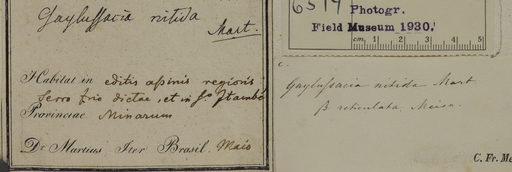 Gaylussacia nitida
Mart.
Habitat in editis apricis regionis
Serro frio dictae, et in So. Itambé
Provinciae Minarum
Dr. Martius Iter Brasil. Maio
6517
Photogr.
Field Museum 1930.
cm. 1 2 3 4 5
c.
Gaylussacia nitida Mart
β reticulata Meisn.
C. Fr.